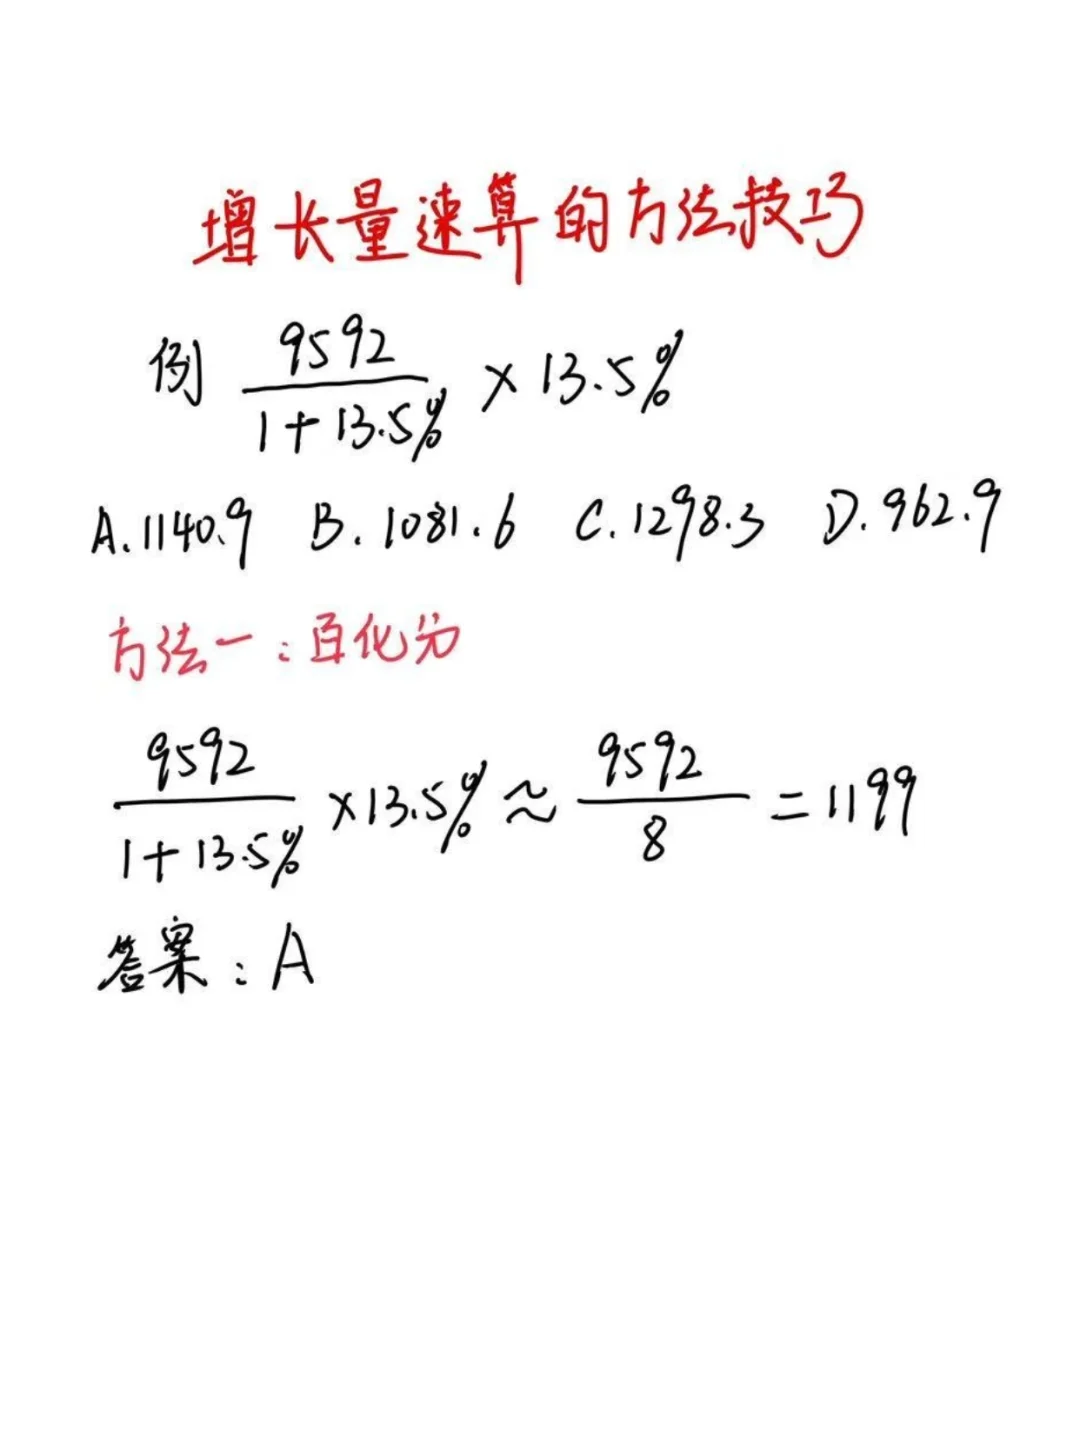 增长量速算的方法技巧
例 9592/(1+13.5%) × 13.5%
A.1140.9 B.1081.6 C.1298.3 D.962.9
方法一:百化分
9592/(1+13.5%) ×13.5% ≈ 9592/8 = 1199
答案:A